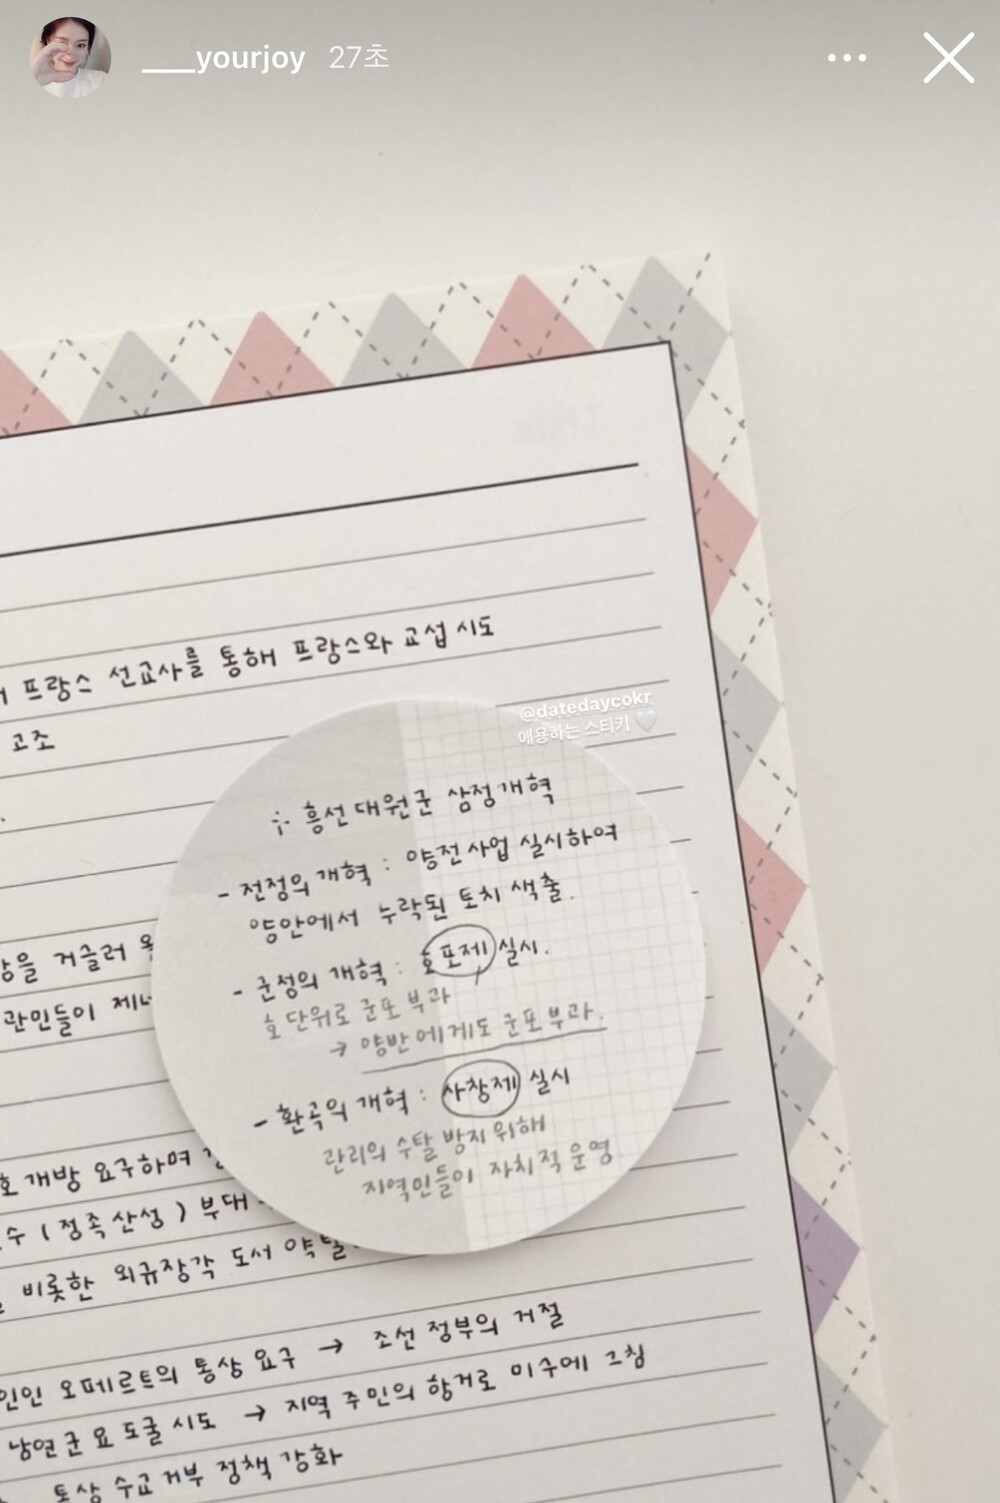 ___yourjoy 27초
프랑스 선교사를 통해 프랑스와 교섭 시도
고조
@datedaycokr
애용하는 스티키 🤍
흥선대원군 삼정개혁
- 전정의 개혁 : 양전사업 실시하여
양안에서 누락된 토지 색출.
- 군정의 개혁 : 호포제 실시.
호 단위로 군포 부과
→ 양반에게도 군포부과.
- 환곡의 개혁 : 사창제 실시
관리의 수탈 방지 위해
지역민들이 자치적 운영
거슬러
관민들이
개방 요구하며
(정족산성) 부대
비롯한 외규장각 도서
오페르트의 통상 요구 → 조선 정부의 거절
남연군묘 도굴 시도 → 지역 주민의 항거로 미수에 그침
통상 수교 거부 정책 강화